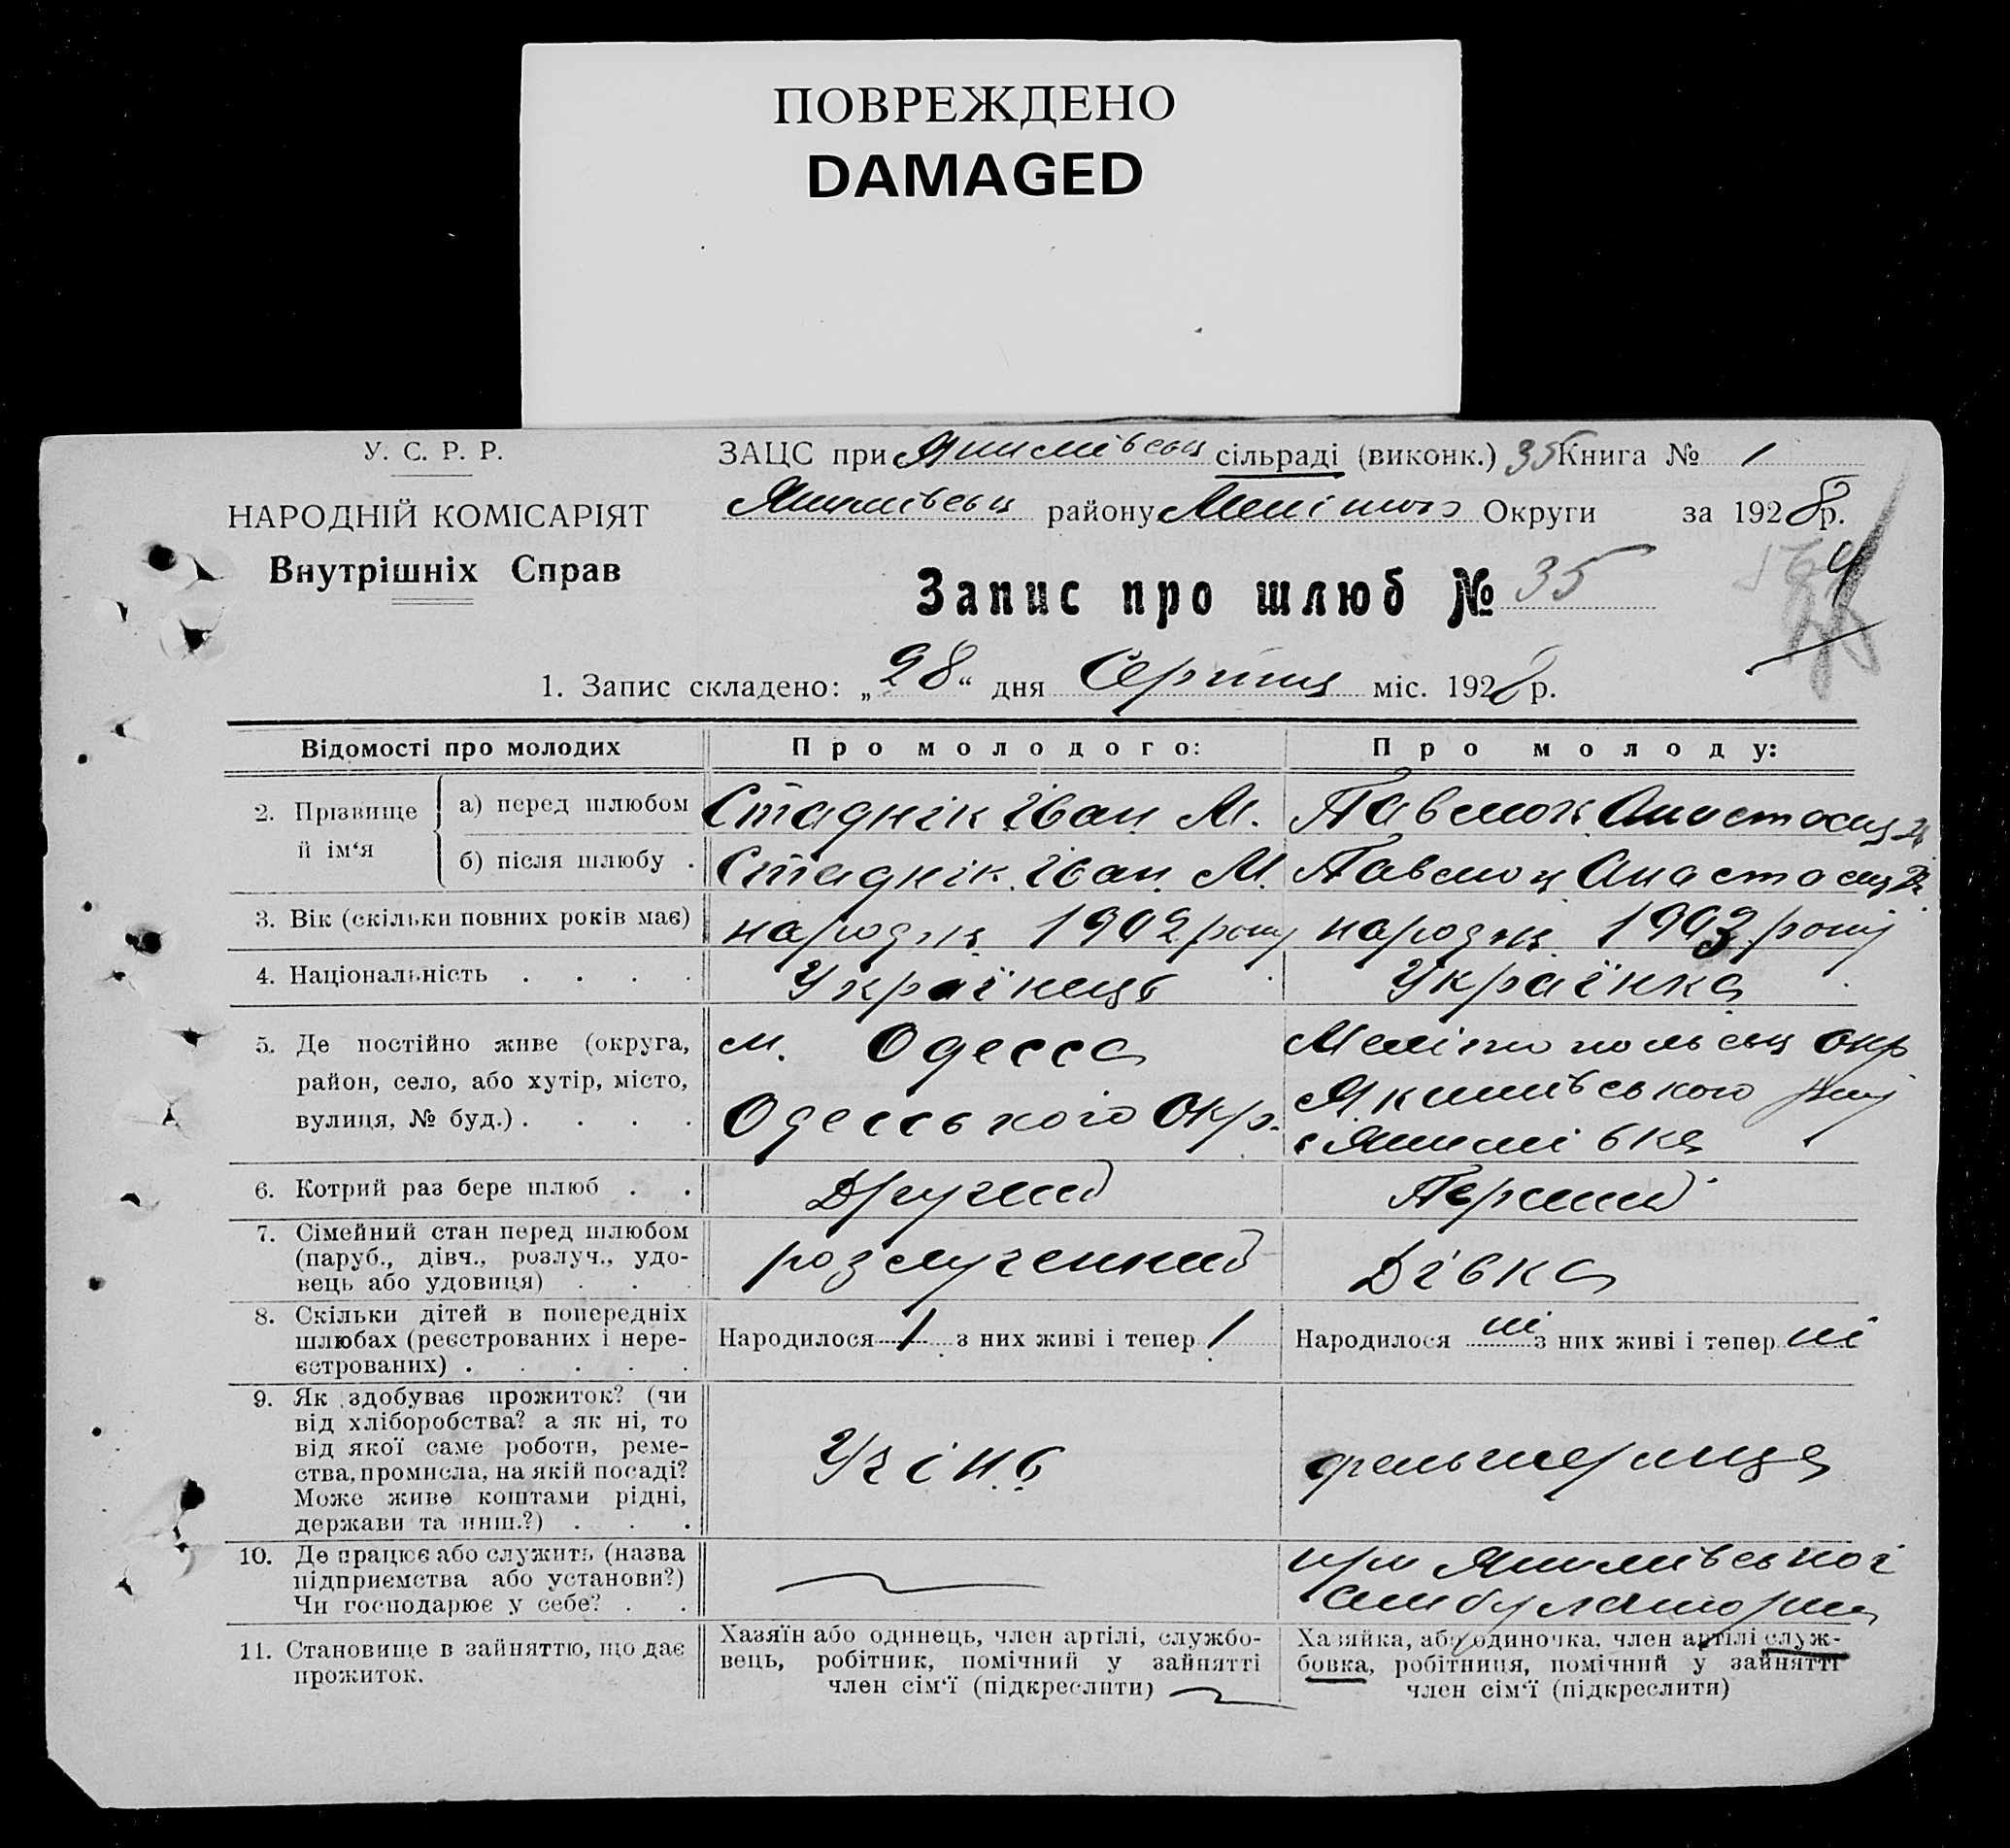 ПОВРЕЖДЕНО
DAMAGED
У. С. Р. Р.
НАРОДНІЙ КОМІСАРІЯТ
Внутрішніх Справ
ЗАЦС при сільраді (виконк.) 35 Книга № 1
району Округи за 1928 р.
Запис про шлюб № 35
1. Запис складено: „28“ дня Серпня міс. 1928 р.
Відомості про молодих
Про молодого:
Про молоду:
2. Прізвище й ім‘я
а) перед шлюбом
Стаднік Іван М.
Павлюк Анастасия
б) після шлюбу .
Стаднік Іван М.
Анастасия
3. Вік (скільки повних років має)
народж 1902 року
народж 1903 року
4. Національність . . . .
Українець
Українка
5. Де постійно живе (округа,
район, село, або хутір, місто,
вулиця, № буд.) . . . .
м. Одесса
Одесського Окр.
Окр
Якимівського
Якимівка
6. Котрий раз бере шлюб . .
Другий
Перший
7. Сімейний стан перед шлюбом
(паруб., дівч., розлуч., удо-
вець або удовиця) . . .
розлученний
Дівка
8. Скільки дітей в попередніх
шлюбах (реєстрованих і нере-
єстрованих) . . . . .
Народилося 1 з них живі і тепер 1
Народилося ні з них живі і тепер ні
9. Як здобуває прожиток? (чи
від хліборобства? а як ні, то
від якої саме роботи, реме-
ства, промисла, на якій посаді?
Може живе коштами рідні,
держави та инш.?) . . .
Учінь
фельшерица
10. Де працює або служить (назва
підприємства або установи?)
Чи господарює у себе? . .
при Якимівської
амбулатории
11. Становище в зайняттю, що дає
прожиток.
Хазяїн або одинець, член артілі, службо-
вець, робітник, помічний у зайнятті
член сім‘ї (підкреслити)
Хазяйка, або одиночка, член артілі служ-
бовка, робітниця, помічний у зайнятті
член сім‘ї (підкреслити)